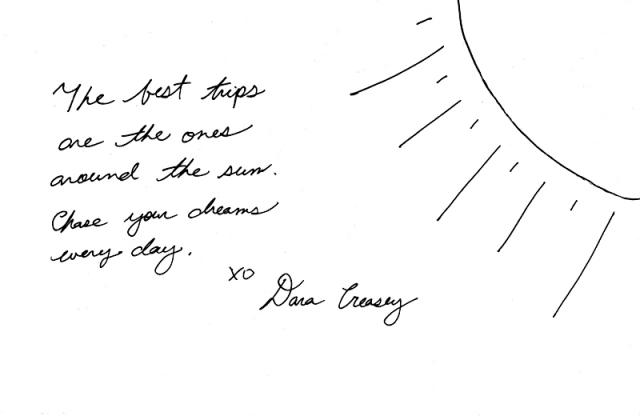 The best trips
are the ones
around the sun.
Chase your dreams
every day.
xo
Dara Creasey